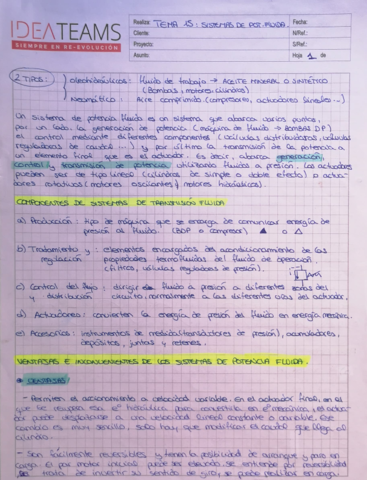 IDEATEAMS
SIEMPRE EN RE-EVOLUCIÓN
Realiza: TEMA 15: SISTEMAS DE POT. FLUIDA. Fecha:
Cliente: N/Ref.:
Proyecto: S/Ref.:
Asunto: Hoja 1 de
2 TIPOS: oleohidráulicos: fluido de trabajo → ACEITE MINERAL O SINTÉTICO
(Bombas, motores, cilindros)
Neumático: Aire comprimido (compresores, actuadores lineales...)
Un sistema de potencia fluida es un sistema que abarca varios puntos,
por un lado, la generación de potencia (máquina de fluido → BOMBAS DP)
el control mediante diferentes componentes (válvulas distribuidoras, válvulas
reguladoras de caudal...) y por último la transmisión de la potencia a
un elemento final que es el actuador. Es decir, abarca generación,
control y transmisión de potencia utilizando fluidos a presión. Los actuadores
pueden ser de tipo lineal (cilindros de simple o doble efecto) o actua-
dores rotativos (motores oscilantes y motores hidráulicos).
COMPONENTES DE SISTEMAS DE TRANSMISIÓN FLUIDA
a) Producción: tipo de máquina que se encarga de comunicar energía de
presión al fluido. (BDP o compresor) ▲ o △
b) Tratamiento y : elementos encargados del acondicionamiento de las
regulación propiedades termofluidas del fluido de operación.
(filtros, válvulas reguladoras de presión).
c) Control del flujo : dirigir el fluido a presión a diferentes zonas del
y distribución circuito, normalmente a las diferentes vías del actuador.
d) Actuadores: convierten la energía de presión del fluido en energía mecánica.
e) Accesorios: instrumentos de medida (transductores de presión), acumuladores,
depósitos, juntas y retenes.
VENTAJAS E INCONVENIENTES DE LOS SISTEMAS DE POTENCIA FLUIDA.
VENTAJAS
- Permiten el accionamiento a velocidad variable. En el actuador final, en el
que se recupera esa E hidráulica para convertirla en E mecánica, el actua-
dor puede desplazarse a una velocidad lineal constante o variable. Este
cambio es muy sencillo, solo hay que modificar el caudal que llega al
cilindro.
- Son fácilmente reversibles y tienen la posibilidad de arranque y paro en
carga. El par motor inicial puede ser elevado, se entiende por reversibilidad
trata de invertir su sentido de giro, se puede realizar en carga